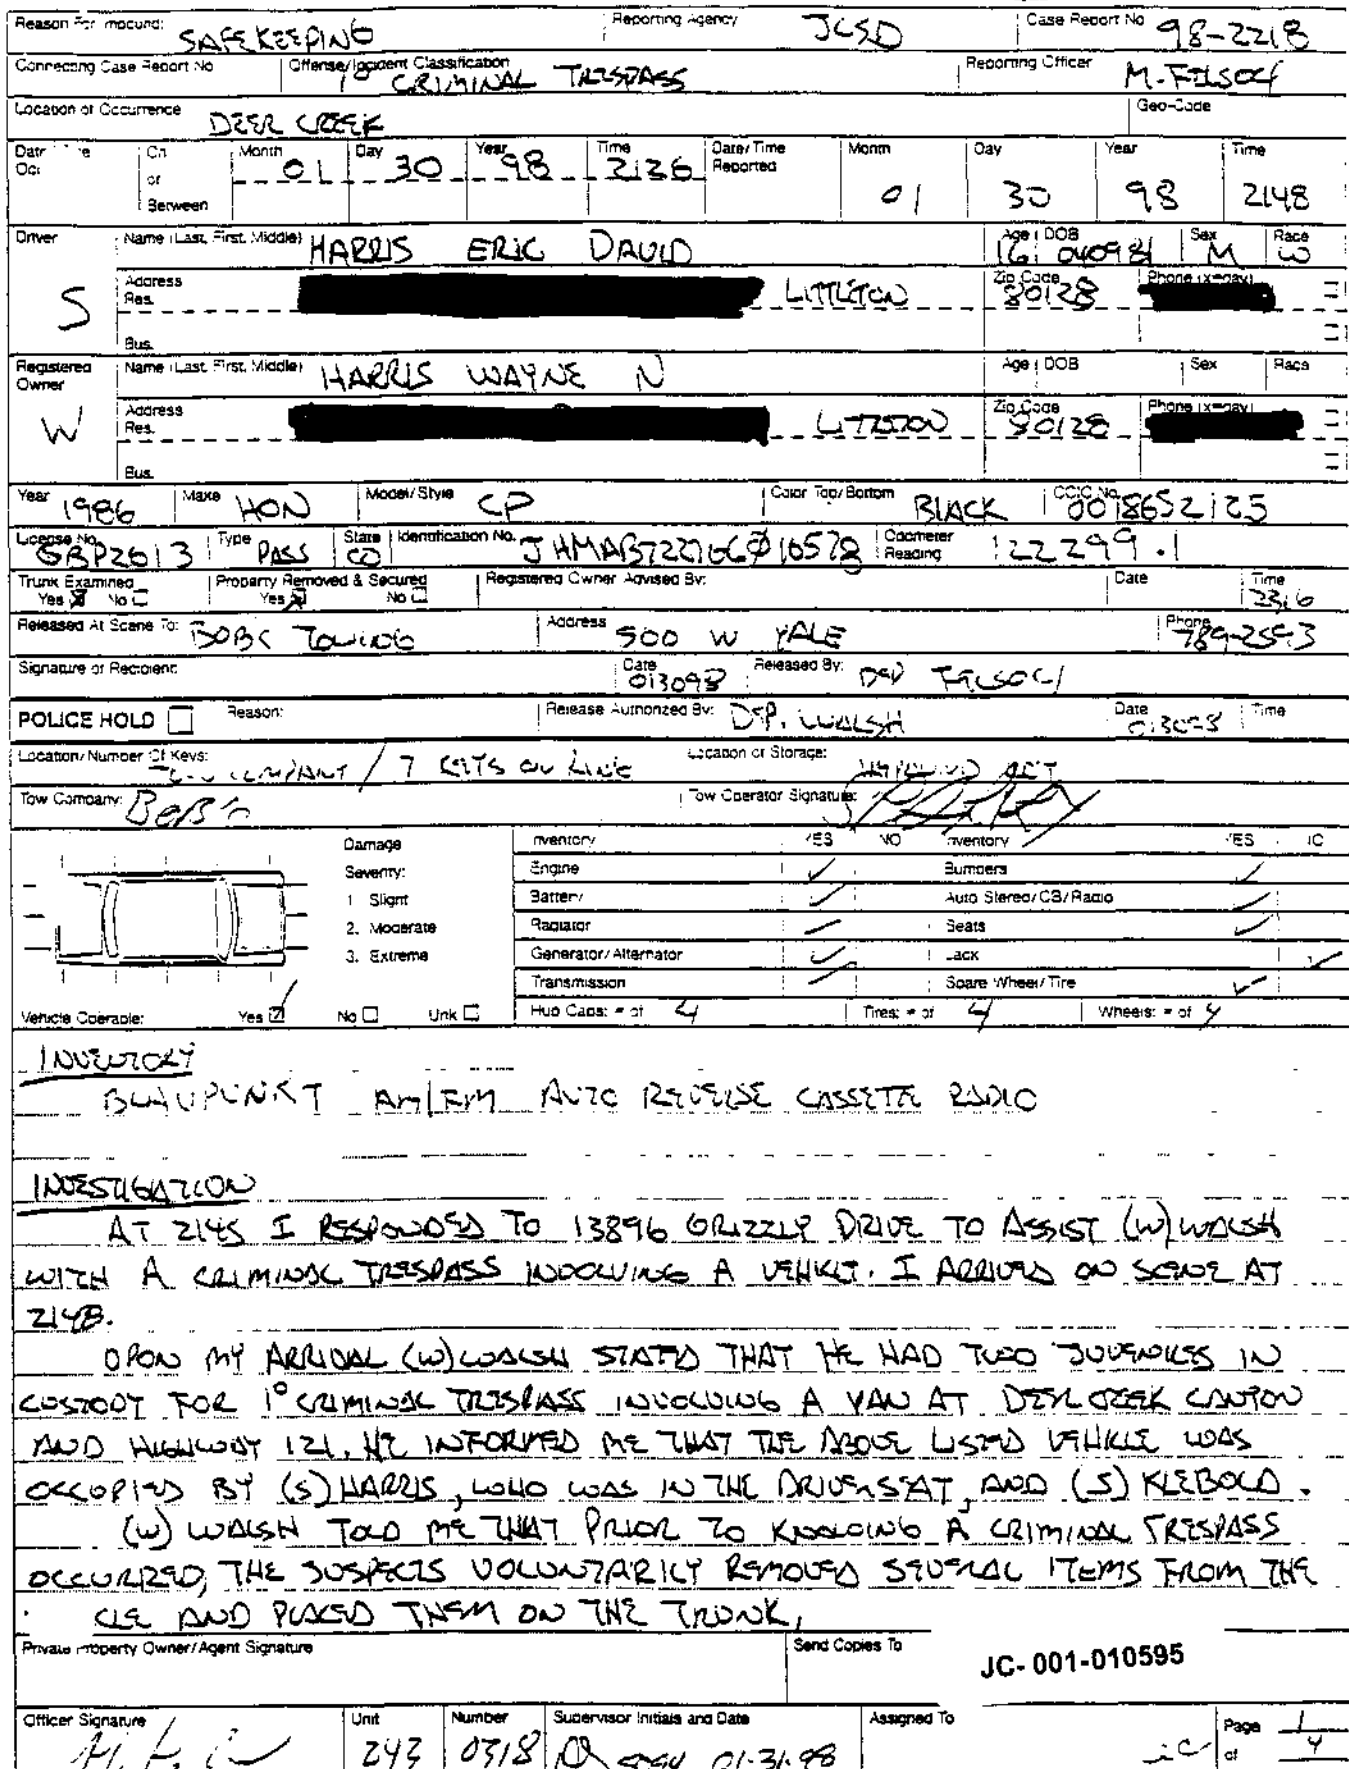 Reason For Impound: SAFEKEEPING Reporting Agency JCSD Case Report No 98-2218
Connecting Case Report No Offense/Incident Classification 1° CRIMINAL TRESPASS Reporting Officer M. FILSOOF
Location of Occurrence DEER CREEK Geo-Code
On or Between Month 01 Day 30 Year 98 Time 2126 Date/Time Reported Month 01 Day 30 Year 98 Time 2148
Driver Name (Last, First, Middle) HARRIS ERIC DAVID Age 16 DOB 040981 Sex M Race W
S Address Res. LITTLETON Zip Code 80128 Phone (x=day)
Bus.
Registered Owner Name (Last, First, Middle) HARRIS WAYNE N Age DOB Sex Race
W Address Res. LITTLETON Zip Code 80128 Phone (x=day)
Bus.
Year 1986 Make HON Model/Style CP Color Top/Bottom BLACK CCIC No. 0018652125
License No. GBP2613 Type PASS State CO Identification No. Odometer Reading 122299.1
Trunk Examined Yes No Property Removed & Secured Yes No Registered Owner Advised By: Date Time 2316
Released At Scene To: BOBS TOWING Address 500 W YALE Phone
Signature of Recipient: Date 013098 Released By: DEP FILSOOF
POLICE HOLD Reason: Release Authorized By: DEP. WALSH Date 013098 Time
Location/Number Of Keys: TOW COMPANY / 7 KEYS ON LINE Location of Storage:
Tow Company: BOB'S Tow Operator Signature:
Damage Inventory YES NO Inventory YES NO
Severity: Engine Bumpers
1 Slight Battery Auto Stereo/CB/Radio
2. Moderate Radiator Seats
3. Extreme Generator/Alternator Jack
Transmission Spare Wheel/Tire
Vehicle Operable: Yes No Unk Hub Caps: # of 4 Tires: # of 4 Wheels: # of 4
INVENTORY
BLAUPUNKT AM/FM AUTO REVERSE CASSETTE RADIO
INVESTIGATION
AT 2145 I RESPONDED TO 13896 GRIZZLY DRIVE TO ASSIST (W) WALSH
WITH A CRIMINAL TRESPASS INVOLVING A VEHICLE. I ARRIVED ON SCENE AT
2148.
UPON MY ARRIVAL (W) WALSH STATED THAT HE HAD TWO JUVENILES IN
CUSTODY FOR 1° CRIMINAL TRESPASS INVOLVING A VAN AT DEER CREEK CANYON
AND HIGHWAY 121. HE INFORMED ME THAT THE ABOVE LISTED VEHICLE WAS
OCCUPIED BY (S) HARRIS, WHO WAS IN THE DRIVERSEAT, AND (S) KLEBOLD.
(W) WALSH TOLD ME THAT PRIOR TO KNOWING A CRIMINAL TRESPASS
OCCURRED, THE SUSPECTS VOLUNTARILY REMOVED SEVERAL ITEMS FROM THE
CLE AND PLACED THEM ON THE TRUNK,
Private Property Owner/Agent Signature Send Copies To JC-001-010595
Officer Signature Unit 243 Number 0318 Supervisor Initials and Date 01-31-98 Assigned To Page 1 of 4